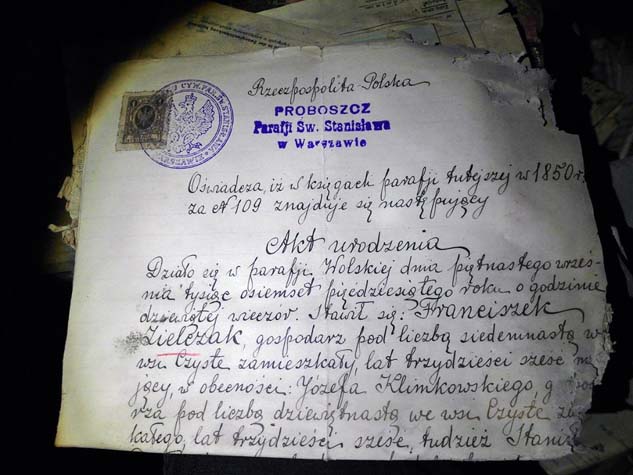 Rzeczpospolita Polska
PROBOSZCZ
Parafji Św. Stanisława
w Warszawie
Oświadcza, iż w księgach parafji tutejszej w 1850 r.
za № 109 znajduje się następujący
Akt urodzenia
Działo się w parafji Wolskiej dnia piętnastego wrześ-
nia tysiąc osiemset pięćdziesiątego roku o godzinie
dziewiątej wieczór. Stawił się: Franciszek
Zielczak, gospodarz pod liczbą siedemnastą w
wsi Czyste zamieszkały, lat trzydzieści sześć m
jący, w obecności: Józefa Klimkowskiego, g
rza pod liczbą dziewiętnastą we wsi Czyste za
kałego, lat trzydzieści sześć, tudzież Stani